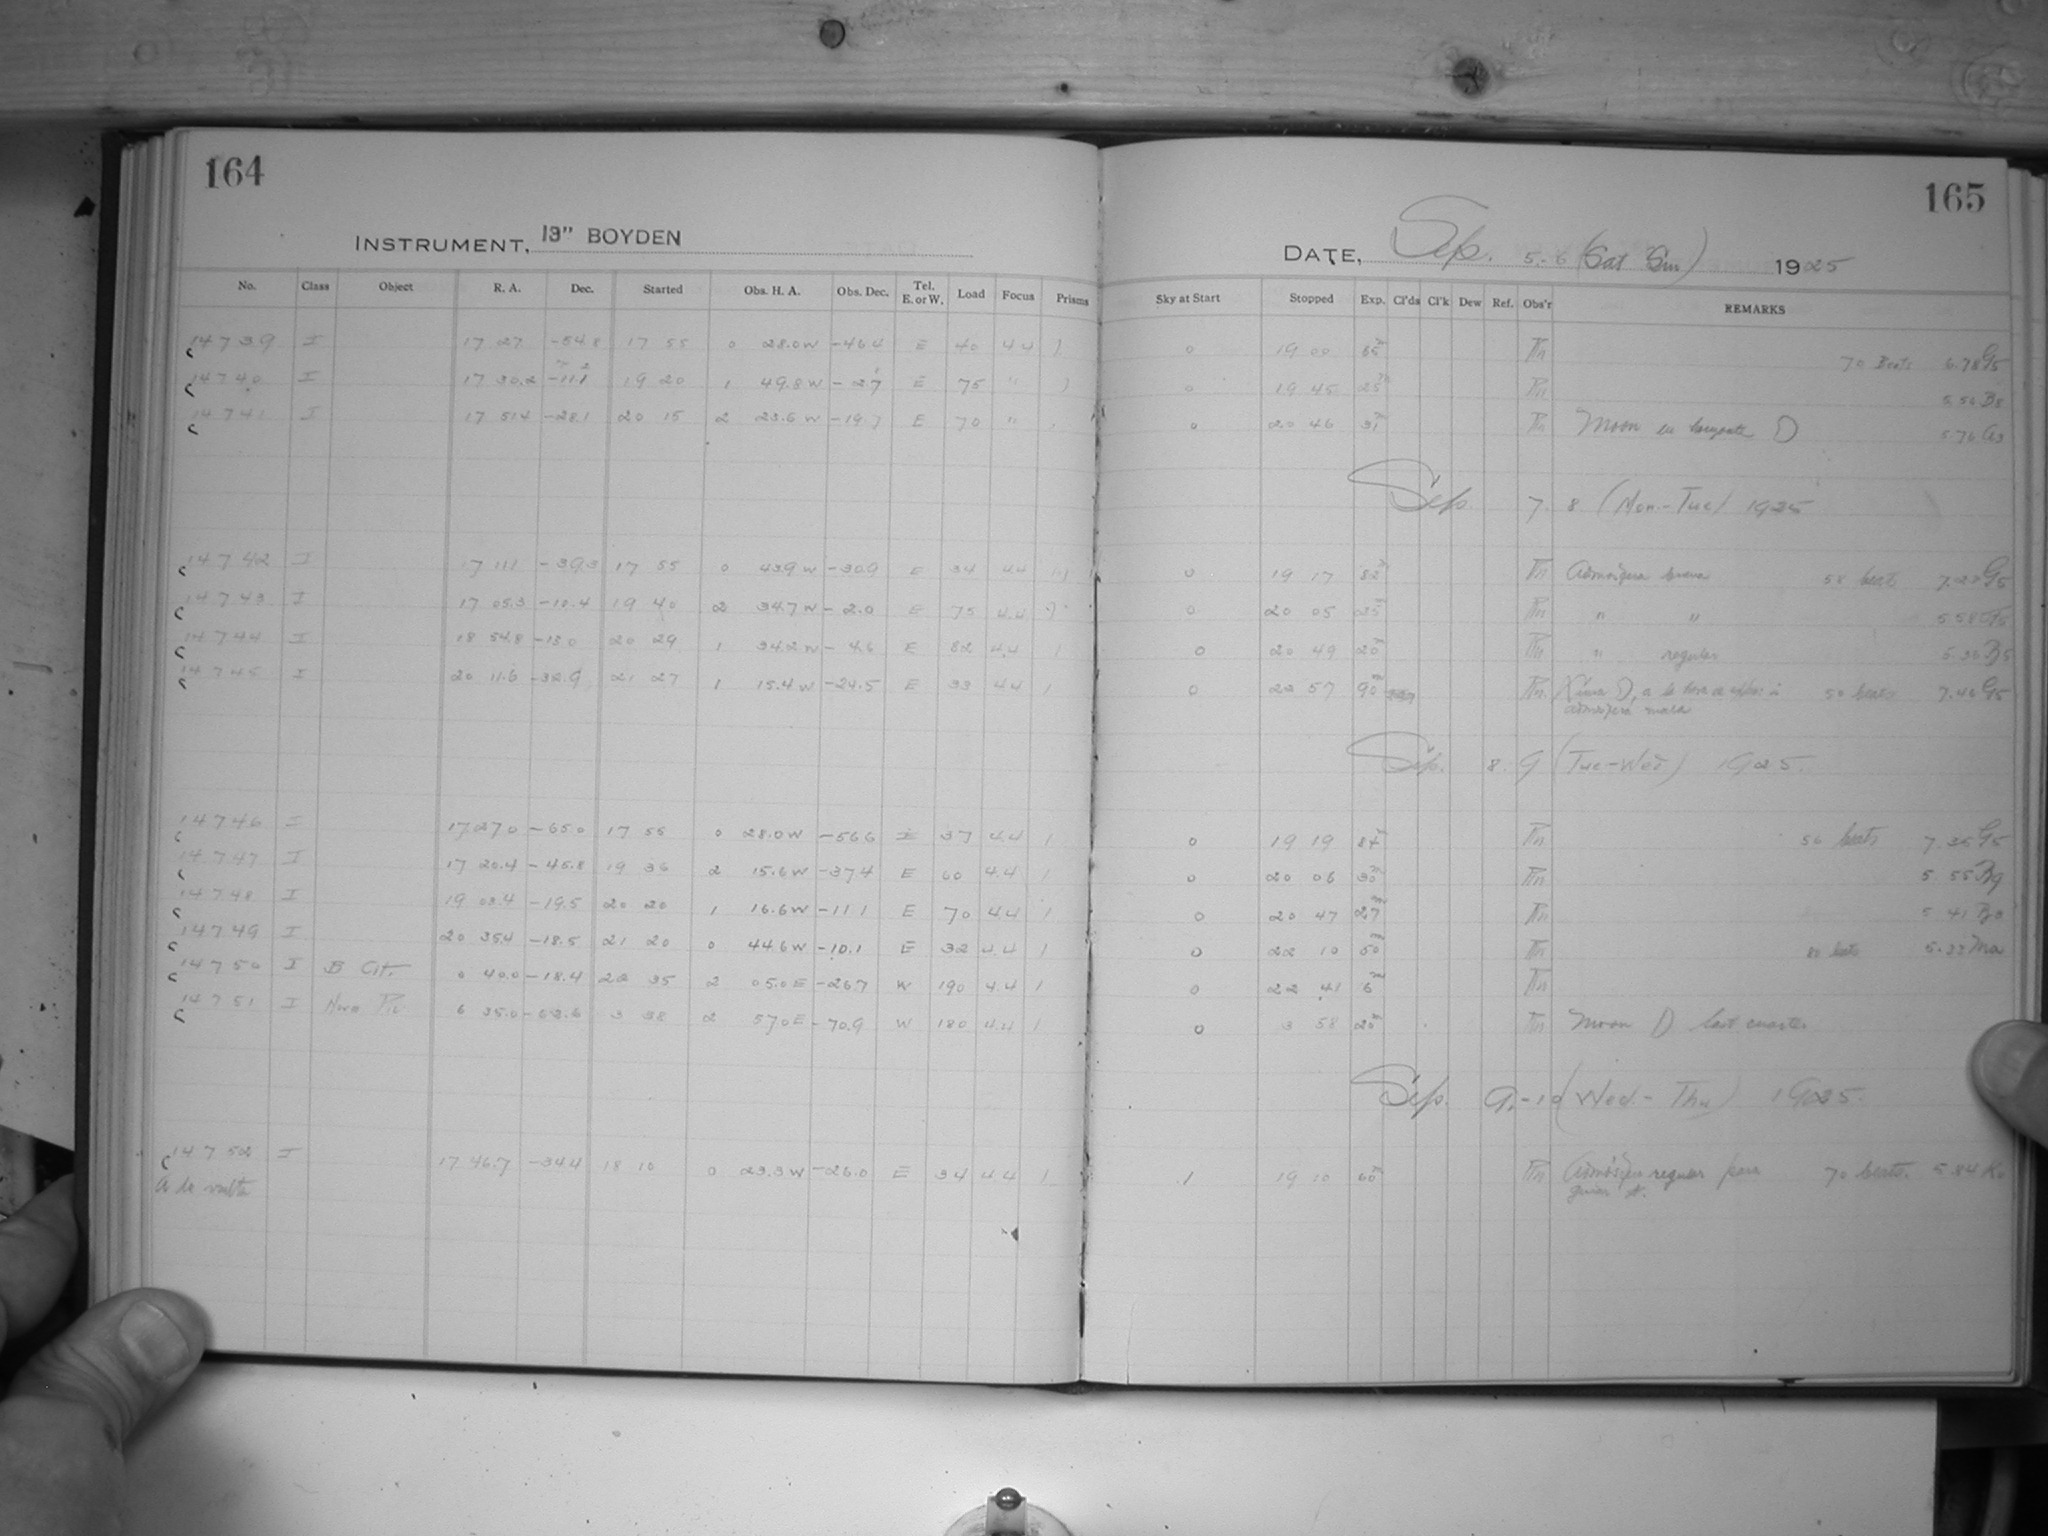 164
INSTRUMENT, 13" BOYDEN
No. Class Object R. A. Dec. Started Obs. H. A. Obs. Dec. Tel. E. or W. Load Focus Prisms
14739 I 17 27 -54.8 17 55 0 28.0 W -46.4 E 40 4.4
14740 I 17 30.2 -11.1 19 20 1 49.8 W -2.7 E 75 "
14741 I 17 51.4 -28.1 20 15 2 23.6 W -19.7 E 70 "
14742 I 17 11.1 -39.3 17 55 0 43.9 W -30.9 E 34 4.4
14743 I 17 05.3 -10.4 19 40 2 34.7 W -2.0 E 75 4.4
14744 I 18 54.8 -13.0 20 29 1 34.2 W -4.6 E 82 4.4 1
14745 I 20 11.6 -32.9 21 27 1 15.4 W -24.5 E 33 4.4 1
14746 I 17 27.0 -65.0 17 55 0 28.0 W -56.6 E 37 4.4 1
14747 I 17 20.4 -45.8 19 36 2 15.6 W -37.4 E 60 4.4 1
14748 I 19 03.4 -19.5 20 20 1 16.6 W -11.1 E 70 4.4 1
14749 I 20 35.4 -18.5 21 20 0 44.6 W -10.1 E 32 4.4 1
14750 I B Cit. 0 40.0 -18.4 22 35 2 05.0 E -26.7 W 190 4.4 1
14751 I Nova Pic 6 35.0 -62.6 3 38 2 57.0 E -70.9 W 180 4.4 1
14752 I 17 46.7 -34.4 18 10 0 23.3 W -26.0 E 34 4.4 1
A la vuelta
165
DATE, Sep. 5-6 (Sat Sun) 1925
Sky at Start Stopped Exp. Cl'ds Cl'k Dew Ref. Obs'r REMARKS
0 19 00 65m 70 Beats 6.78 G5
0 19 45 25m 5.56
0 20 46 31m Moon 5.76
Sep. 7. 8 (Mon.-Tue) 1925
0 19 17 82m buena 58 beats 7.23 G5
0 20 05 25m " " 5.58
0 20 49 20m " regular 5.36
0 22 57 90m 50 beats 7.46 G5
mala
Sep. 8. 9 (Tue-Wed) 1925.
0 19 19 84m 56 beats 7.35 G5
0 20 06 30m 5.55 B9
0 20 47 27m 5.41
0 22 10 50m 80 beats 5.33 Ma
0 22 41 6m
0 3 58 20m Moon last cuarto.
Sep. 9.-10 (Wed.-Thu) 1925.
1 19 10 60m regular para 70 beats. 5.84 K0
guiar